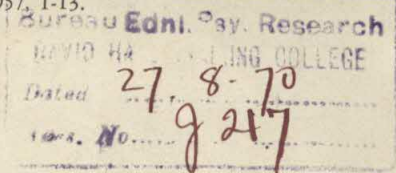 957, 1-13.
Bureau Ednl. Psy. Research
DAVID HA ING COLLEGE
Dated 27.8.70
No. g 247